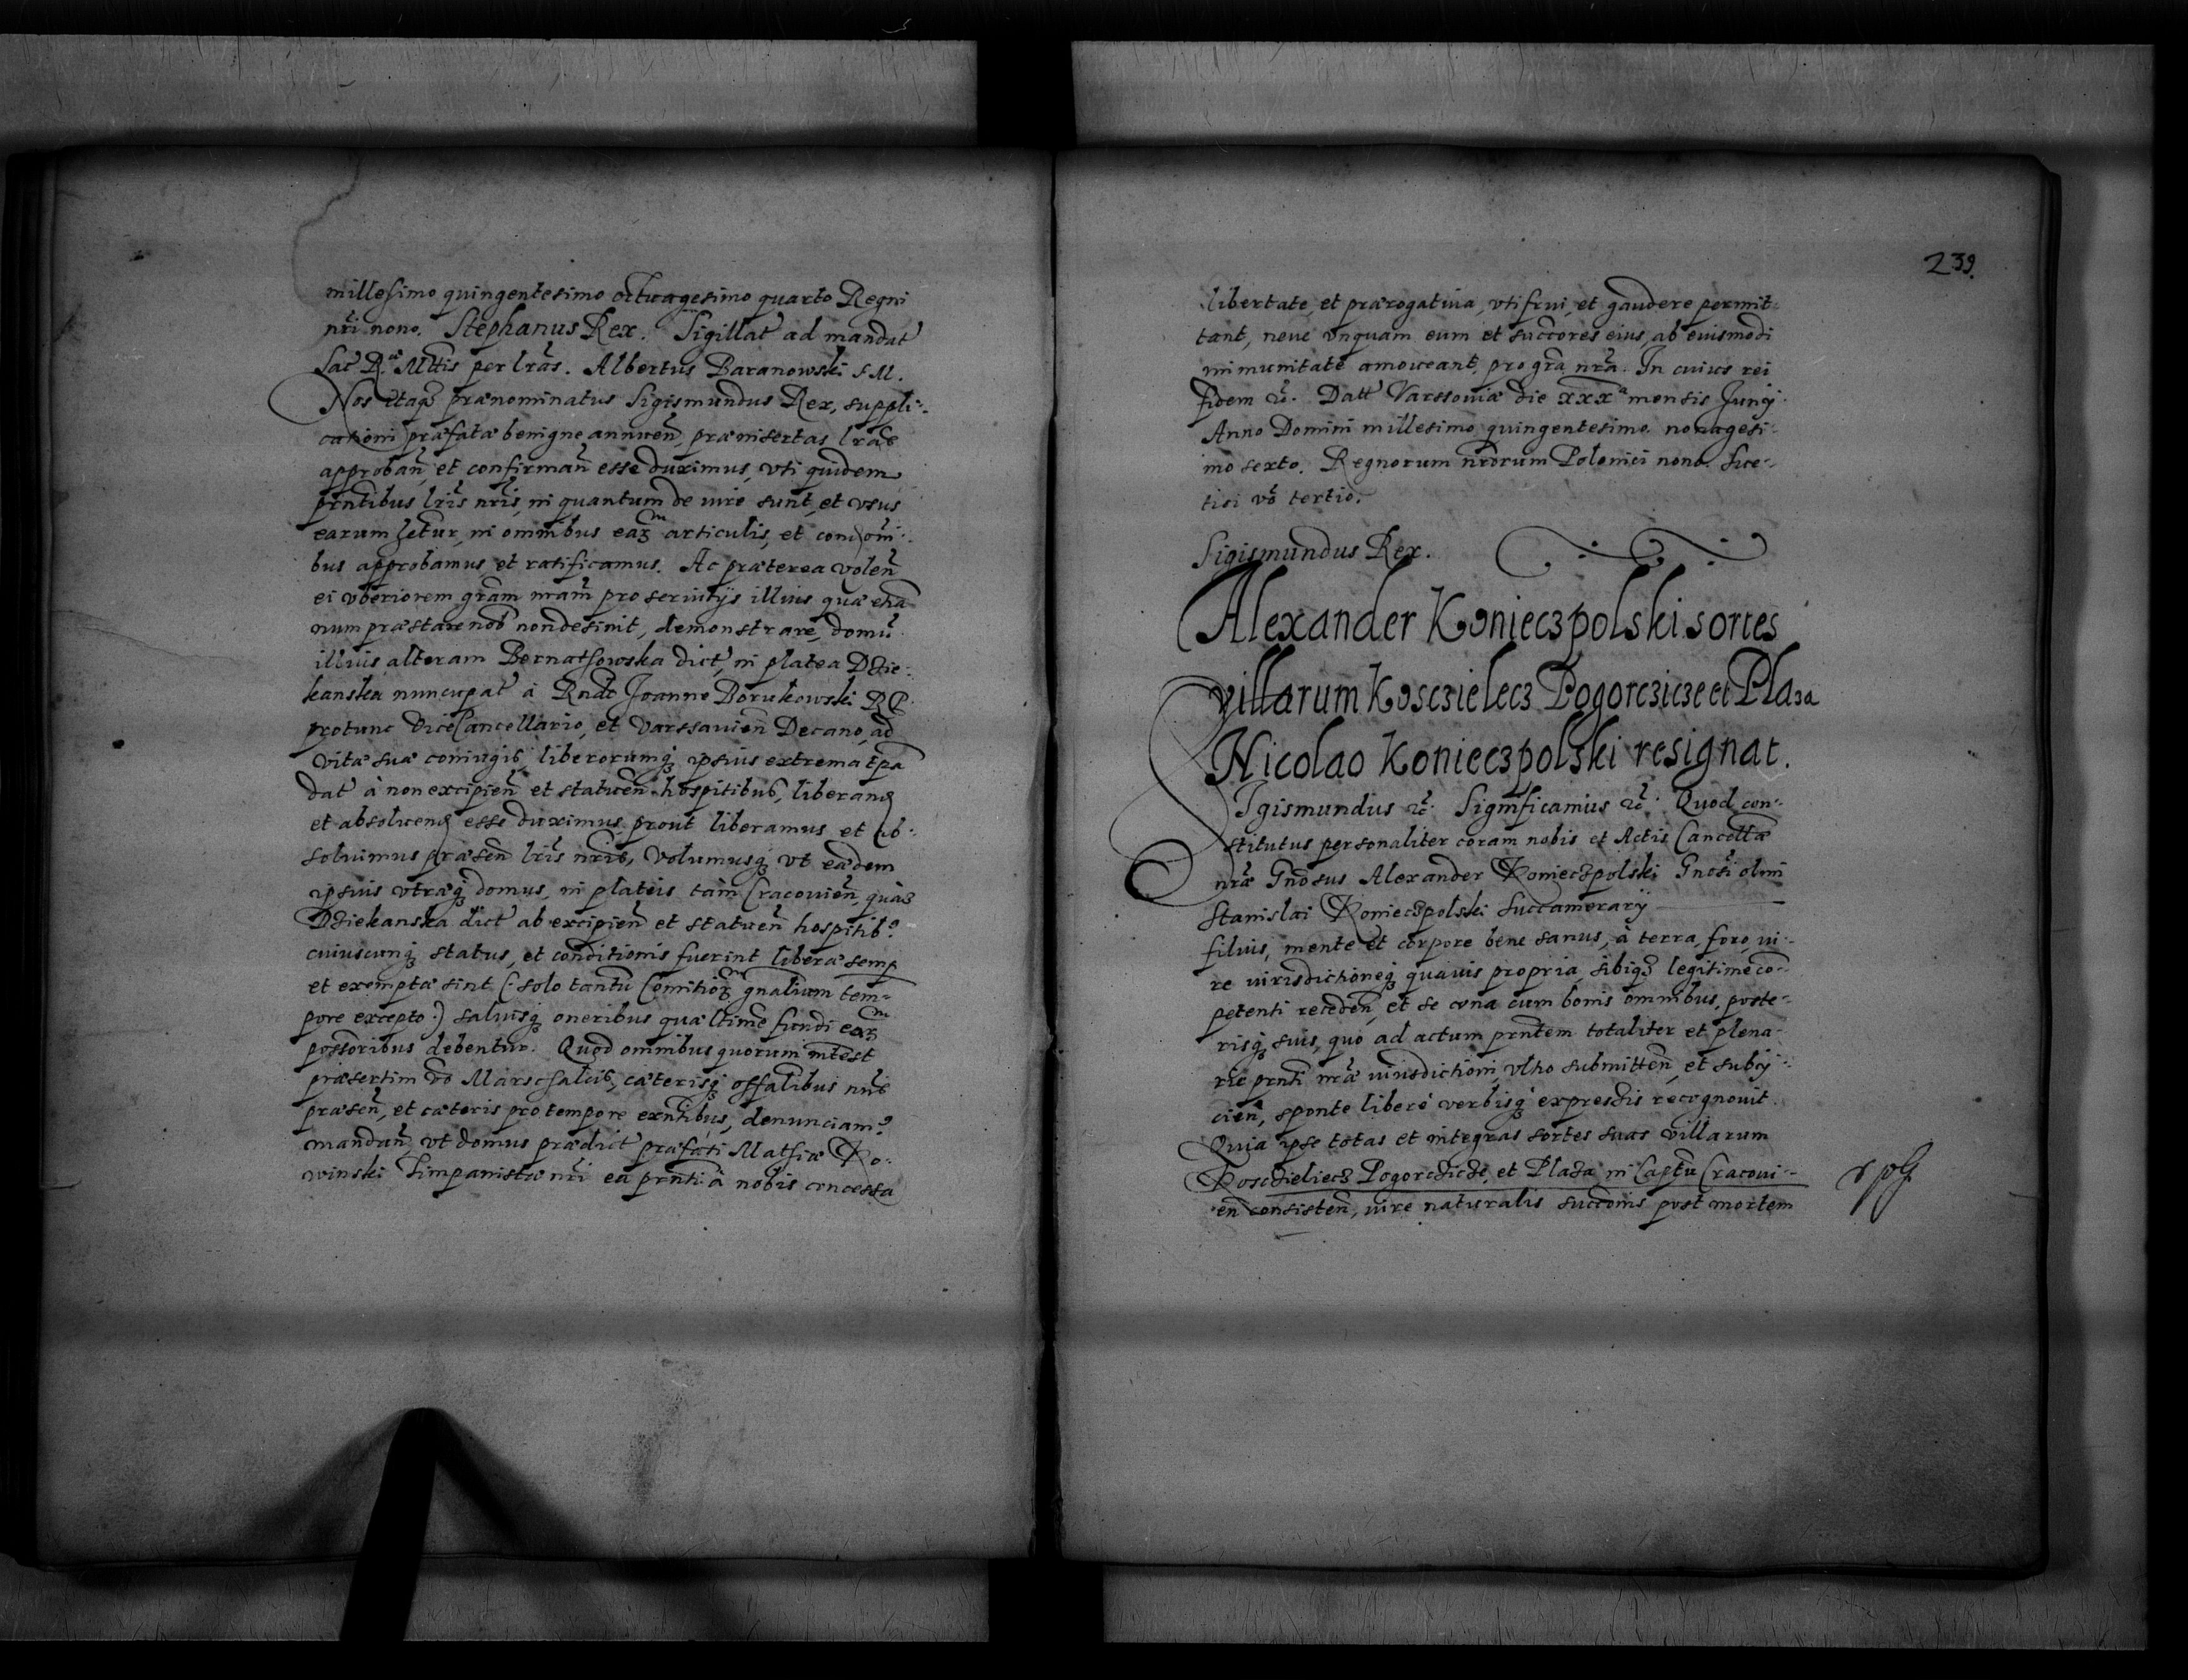 millesimo quingentesimo octuagesimo quarto Regni
nri nono. Stephanus Rex. Sigillat ad mandat
Sac Rae Mttis per lras. Albertus Baranowski S M.
Nos itaqz prænominatus Sigismundus Rex, suppli-
cationi præfatæ benigne annuen, præinsertas lras
approban, et confirman esse duximus, vti quidem
prntibus lris nris, in quantum de iure sunt, et vsus
earum hetur, in omnibus earz articulis, et
bus approbamus, et ratificamus. Ac præterea volen
ei vberiorem gram nram pro seruitijs illius quæ etia
num præstare nob non desinit, demonstrare, domu
illius alteram Bernatsowska dict, in platea Dzie-
kanska nuncupat à Rndo Joanne Borukowski R P
protunc ViceCancellario, et Varssauien Decano, ad
vitæ suæ coniugis, liberorumqz ipsius extrema tpa
dat à non excipien et statuen hospitibus, liberand
et absoluend esse duximus, prout liberamus et ab-
soluimus præsen lris nris, Volumusqz vt eædem
ipsius vtræqz domus, in plateis tàm Cracouien quàm
Dziekanska dict ab excipien et statuen hospitib9
cuiuscunqz status, et conditionis fuerint liberæ semp
et exemptæ sint (: solo tantu Comitiorz gnalium tem-
pore excepto :) saluisqz oneribus quæ ltime fundi earz
possoribus debentur. Quod omnibus quorum intest
præsertim vo Marschalcis, cæterisqz offalibus nris
præsen, et cæteris pro tempore exntibus, denunciam9
mandan, vt domus prædict præfati Mathiæ Ro-
winski Timpanistæ nri ea prnti à nobis concessa
239.
libertate, et prærogatiua, vti frui, et gaudere permit-
tant, neue vnquam eum et succores eius, ab eiusmodi
immunitate amoueant, pro gra nra. In cuius rei
fidem &c. Datt Varssouiæ die xxxa mensis Junij
Anno Domini millesimo quingentesimo nonagesi-
mo sexto. Regnorum nrorum Polonici nono. Sue-
tici vo tertio.
Sigismundus Rex.
Alexander Konieczpolski sortes
villarum Kosczielecz Pogorczicze et Plaza
Nicolao Konieczpolski resignat.
Sigismundus &c. Significamus &c. Quod con-
stitutus personaliter coram nobis et Actis Cancellæ
nræ Gnosus Alexander Konieczpolski Gnosi olim
Stanislai Konieczpolski Succamerarij
filius, mente et corpore bene sanus, à terra, foro, iu-
re iurisdictioneqz quauis propria, sibiqz legitime co-
petenti receden, et se vna cum bonis omnibus, poste-
risqz suis, quo ad actum prntem totaliter et plena-
rie prnti nræ iurisdictioni, vltro submitten, et subij-
cien, sponte liberè verbisqz expressis recognouit.
Quia ipse totas et integras sortes suas villarum
Kosczieliecz Pogorczicze, et Plaza in Captu Cracoui-
en consisten, iure naturalis succonis post mortem